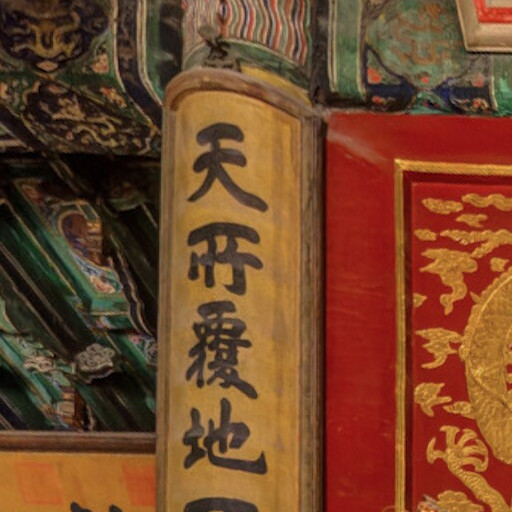 天所覆地